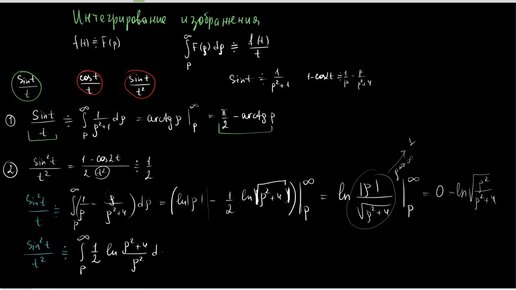 Интегрирование изображения
f(t) ≑ F(p)   ∫_p^∞ F(p)dp ≑ f(t)/t
sin t/t   cos t/t   sin t/t²   sin t ÷ 1/(p²+1)   1-cos2t ≑ 1/p - p/(p²+4)
① sin t/t ≑ ∫_p^∞ 1/(p²+1) dp = arctg p |_p^∞ = π/2 - arctg p
② sin²t/t² = (1-cos2t)/(2t²) ≑ 1/2
sin²t/t ≑ ∫_p^∞ (1/p - p/(p²+4)) dp = (ln|p| - 1/2 ln(p²+4)) |_p^∞ = ln |p|/√(p²+4) |_p^∞ = 0 - ln √(p²/(p²+4))
sin²t/t² ≑ ∫_p^∞ 1/2 ln (p²+4)/p² d